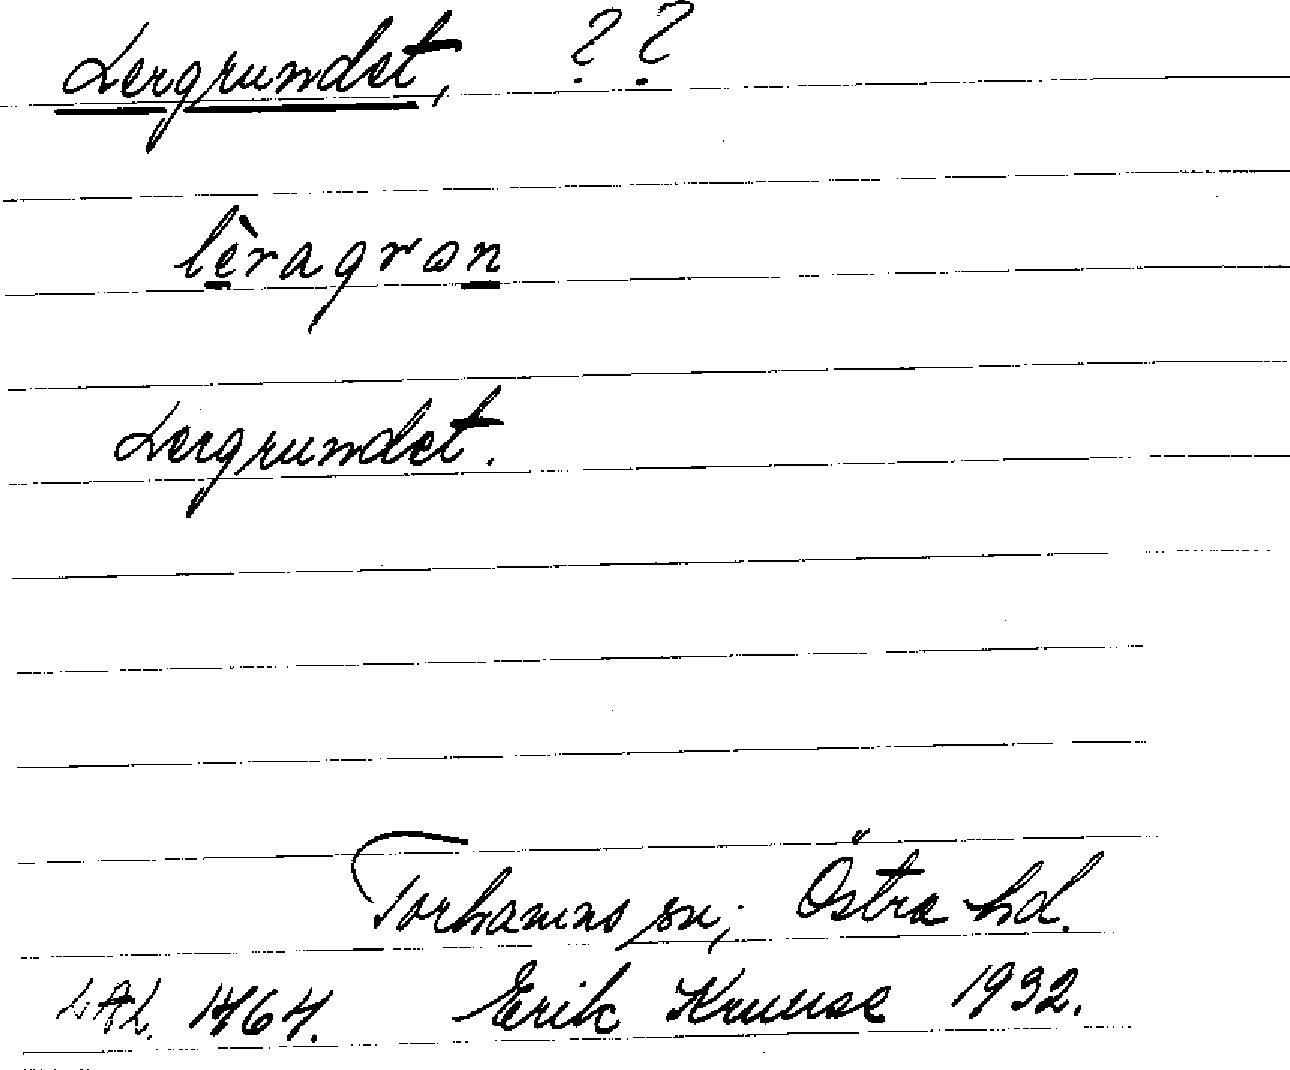 Lergrundet, ??
lèragron
Lergrundet.
Torhamns sn; Östra hd.
LAL. 1464. Erik Kruuse 1932.